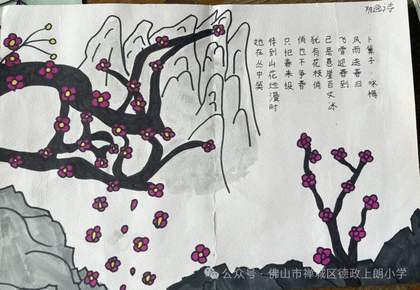 卜算子 咏梅
风雨送春归
飞雪迎春到
已是悬崖百丈冰
犹有花枝俏
俏也不争春
只把春来报
待到山花烂漫时
她在丛中笑
公众号 · 佛山市禅城区德政上朗小学